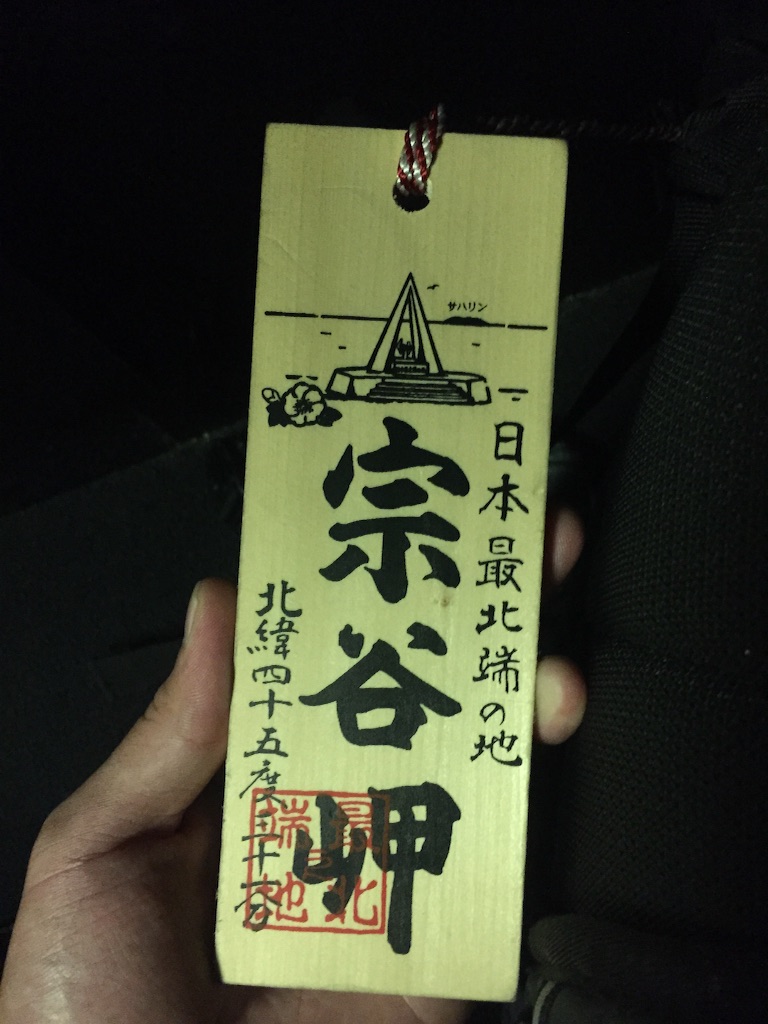 サハリン
日本最北端の地
宗谷岬
北緯四十五度三十一分
最北端之地